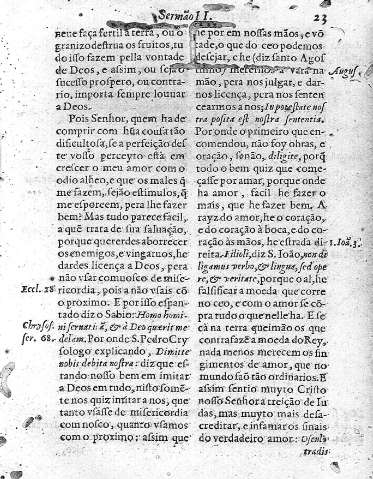 Sermão II.
23
neve faça fertil a terra, ou o
granizo destrua os fruitos, tu
do isso fazem pella vontade
de Deos, e assim, ou seja o
sucesso prospero, ou contra-
rio, importa sempre louvar
a Deos.
Pois Senhor, quem ha de
comprir com hũa cousa tão
dificultosa, se a perfeição des
te vosso perceyto està em
crescer o meu amor com o
odio alheo, e que os males q̃
me fazem, sejão estimulos, q̃
me esporcem, pera lhe fazer
bem? Mas tudo parece facil,
a quẽ trata de sua saluação,
porque quererdes aborrecer
os enemigos, e vingaruos, he
dardes licença a Deos, pera
não vsar com uosco de mise-
Eccl. 28
ricordia, pois a não vsais cõ
o proximo. E por isso espan-
tado diz o Sabio: Homo homi-
Chrysos.
ni seruat irã, & à Deo quærit me
ser. 68.
delam. Por onde S. Pedro Cry
sologo explicando, Dimitte
nobis debita nostra: diz que es-
tando nosso bem em imitar
a Deos em tudo, nisto somẽ-
te nos quiz imitar a nos, que
tanto vsasse de misericordia
com nosco, quanto vsamos
com o proximo: assim que
he por em nossas mãos, e võ
tade, o que do ceo podemos
desejar, e he (diz santo Agos
tinho) meternos a vara na
Augus.
mão, pera nos julgar, e dar-
nos licença, pera nos senten
cearmos a nos; In potestate nos
tra posita est nostra sententia.
Por onde o primeiro que en-
comendou, não foy obras, e
oração, senão, deligite, porq̃
todo o bem quiz que come-
çasse por amar, porque onde
ha amor, facil he fazer o
mais, que he fazer bem. A
rayz do amor, he o coração,
e do coração à boca, e do co-
ração às mãos, he estrada di-
reita. Filioli, diz S. João, non di
1. Ioã, 3.
ligamus verbo, & lingua, sed ope
re, & veritate, porque o al, he
falsificar a moeda que corre
no ceo, e com o amor se cõ
pra tudo o que nelle ha. E se
cà na terra queimão os que
contrafazẽ a moeda do Rey,
nada menos merecem os fin
gimentos de amor, que no
mundo saõ tão ordinarios. E
assim sentio muyto Christo
nosso Senhor a treição de Iu
das, mas muyto mais desa-
creditar, e infamar os sinais
do verdadeiro amor: Osculo
tradis